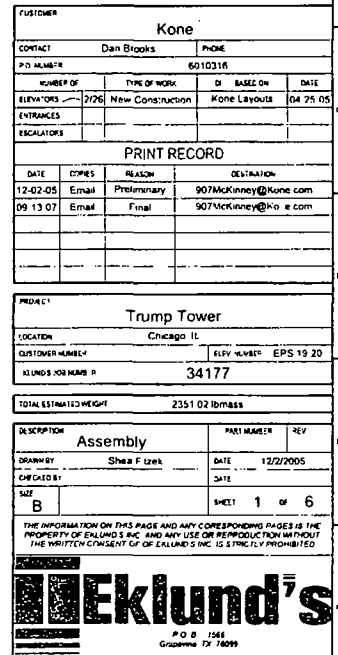 CUSTOMER
Kone
CONTACT Dan Brooks PHONE
P.O. NUMBER 6010316
NUMBER OF TYPE OF WORK BASED ON DATE
ELEVATORS 2/26 New Construction Kone Layouts 04 25 05
ENTRANCES
ESCALATORS
PRINT RECORD
DATE COPIES REASON DESTINATION
12-02-05 Email Preliminary 907McKinney@Kone com
09 13 07 Email Final 907McKinney@Ko e com
PROJECT
Trump Tower
LOCATION Chicago IL
CUSTOMER NUMBER ELEV NUMBER EPS 19 20
34177
TOTAL ESTIMATED WEIGHT 2351 02 lbmass
DESCRIPTION PART NUMBER REV
Assembly
DRAWN BY Shea F tzek DATE 12/2/2005
CHECKED BY DATE
SIZE
B SHEET 1 OF 6
THE INFORMATION ON THIS PAGE AND ANY CORESPONDING PAGES IS THE
PROPERTY OF EKLUND'S INC AND ANY USE OR REPRODUCTION WITHOUT
THE WRITTEN CONSENT OF OF EKLUND'S INC IS STRICTLY PROHIBITED
Eklund's
P O B 1566
Grapevine TX 76099